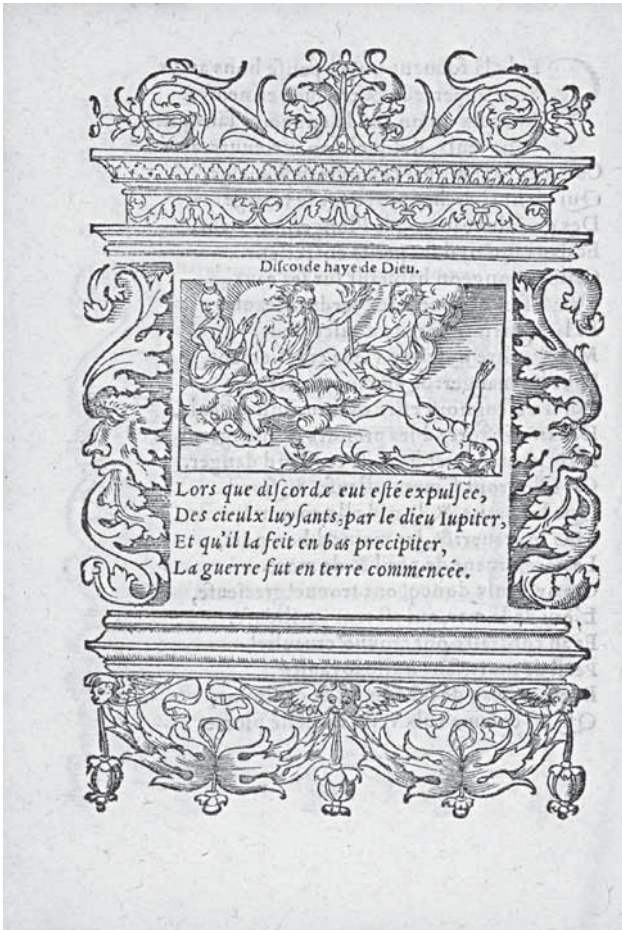 Diſcorde haye de Dieu.
Lors que diſcordæ eut eſté expulſee,
Des cieulx luyſants, par le dieu Iupiter,
Et qu'il la feit en bas precipiter,
La guerre fut en terre commencée.